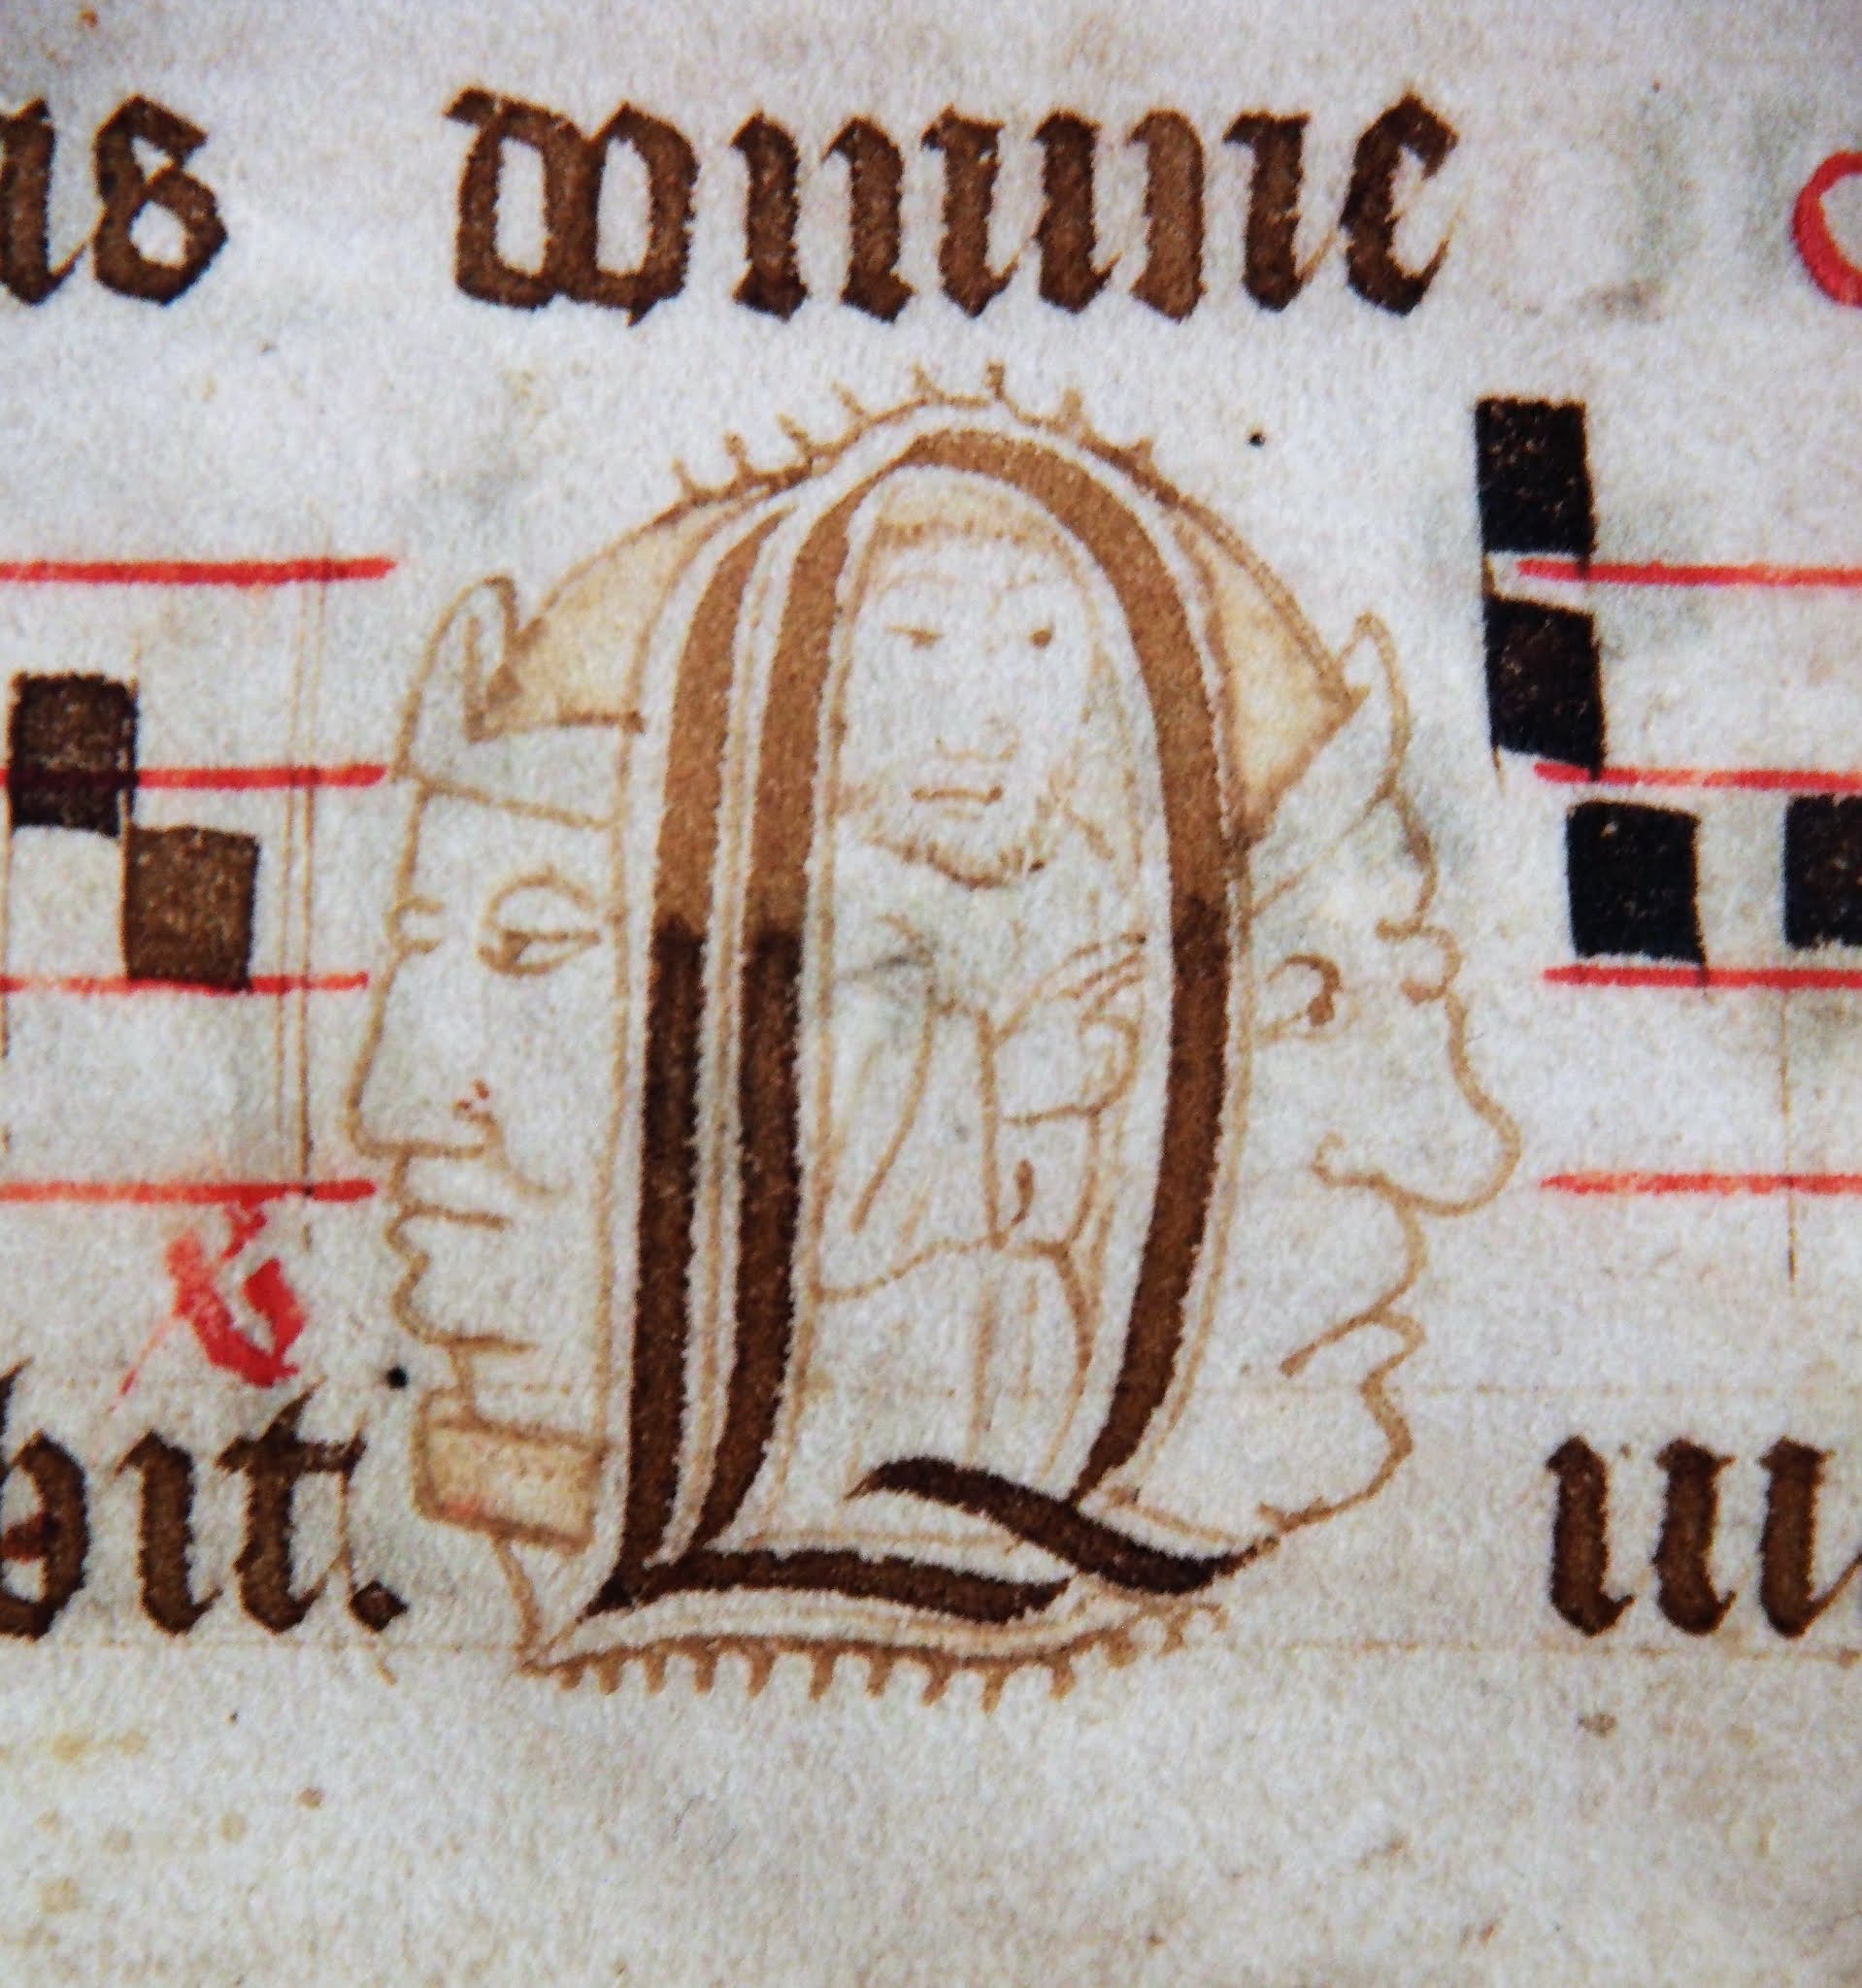 us domine
bit. Qui